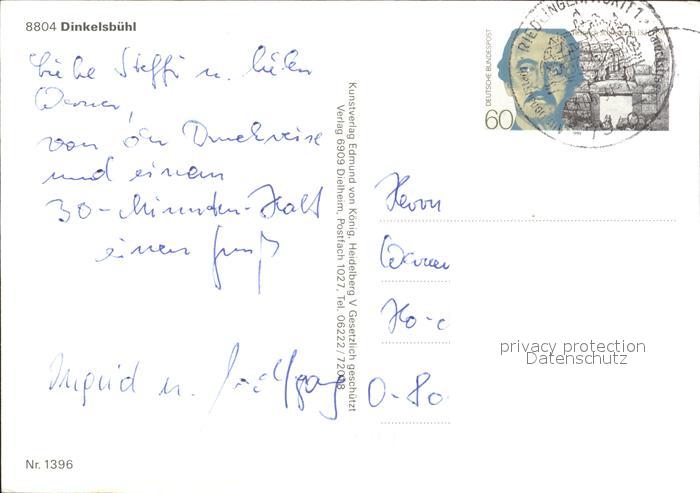 8804 Dinkelsbühl
Liebe Steffi u. lieber
Werner,
von der Durchreise
und einem
30-Minuten-Halt
einen Gruß
Ingrid u. Wolfgang
Nr. 1396
Kunstverlag Edmund von König, Heidelberg V Gesetzlich geschützt
Verlag 6909 Dielheim, Postfach 1027, Tel. 06222/72028
DEUTSCHE BUNDESPOST
60
RIEDLINGEN
Herrn
Werner
Ho-
O-80
privacy protection
Datenschutz